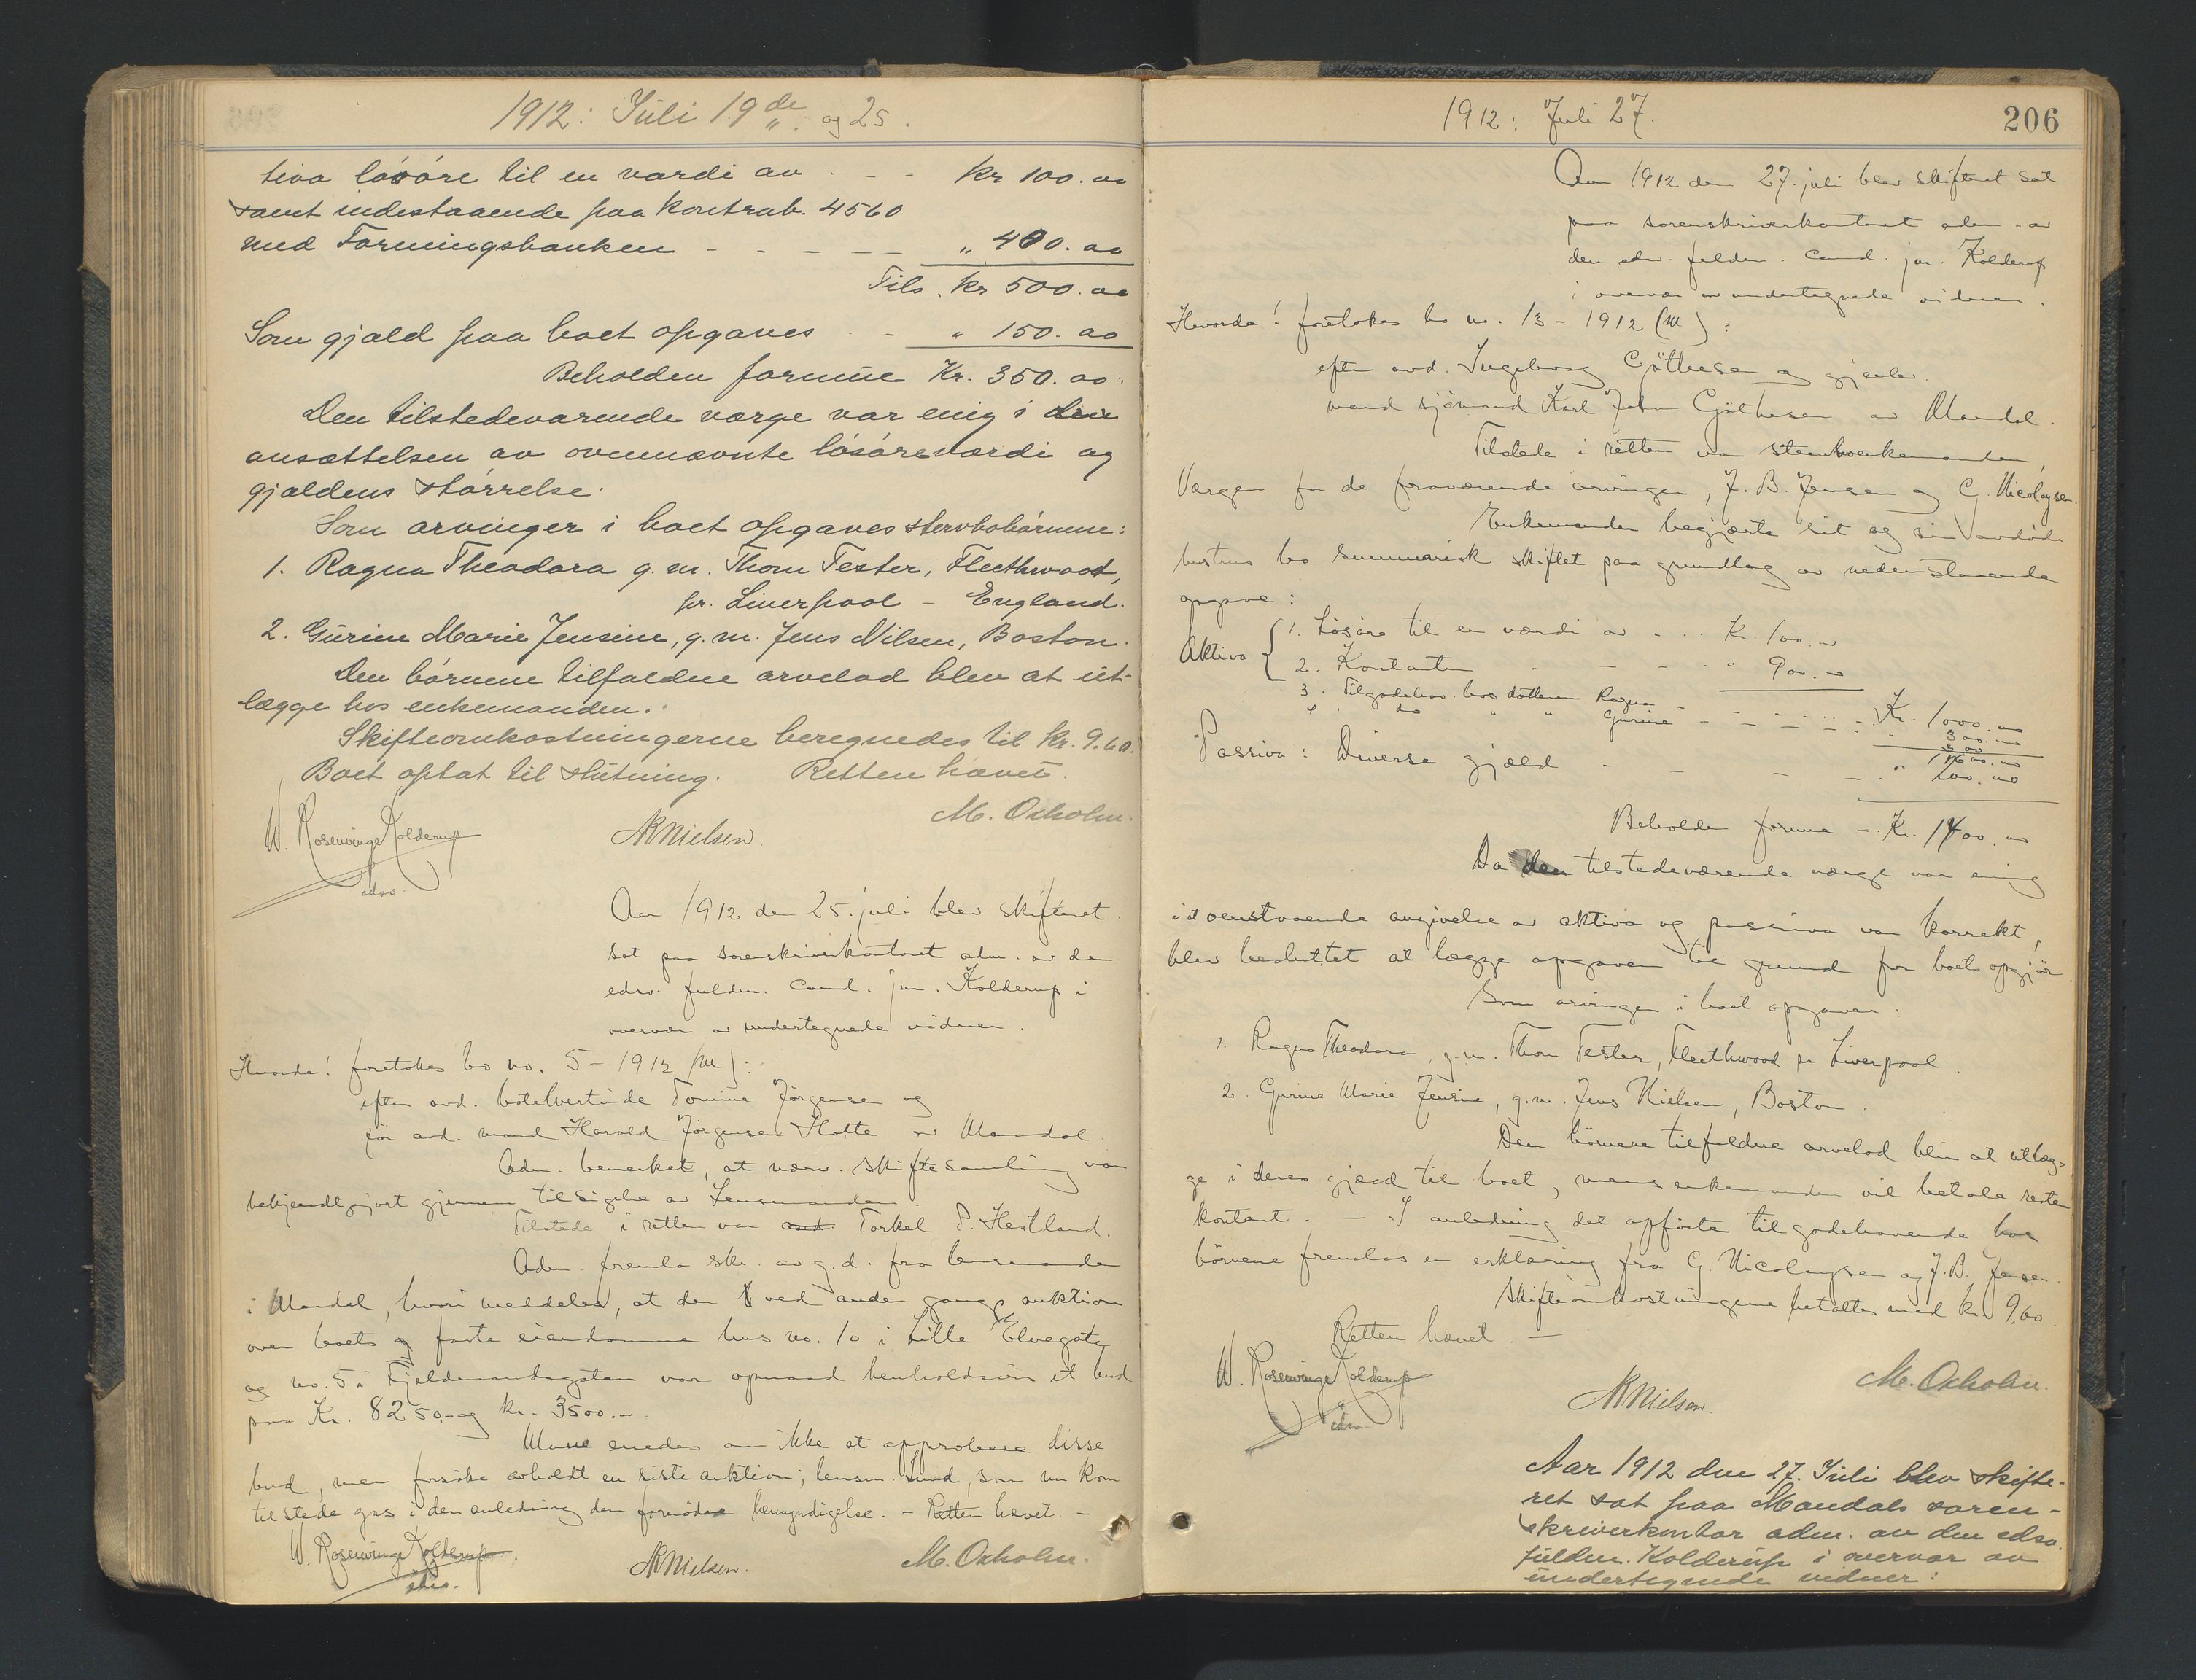 1912: Juli 19de og 25.
tiva løsøre til en værdi av - - Kr 100.00
samt indestaaende paa kontrab. 4560
med Forningsbanken - - - - - " 400.00
Tils. Kr 500.00
Som gjæld paa boet opgaves - " 150.00
Beholden formue Kr. 350.00.
Den tilstedeværende værge var enig i den
ansættelsen av ovennævnte løsøreværdi og
gjældens størrelse.
Som arvinger i boet opgaves stervbobørnene:
1. Ragna Theodora g.m. Thom Tester, Fleethwood,
pr. Liverpool - England.
2. Gurine Marie Jensine, g.m. Jens Nilsen, Boston.
Den børnene tilfaldne arvelod blev at ut-
lægge hos enkemanden.
Skifteomkostningerne beregnedes til kr. 9.60.
Boet optat til slutning. Retten hævet.
W. Rosenvinge Kolderup
edsv.
NKNielsen.
M. Oxholm.
Aar 1912 den 25. juli blev skifteret
sat paa sorenskriverkontoret adm. av den
edsv. fuldm. cand. jur. Kolderup i
overvær av undertegnede vidner.
Hvorda! foretokes bo no. 5 - 1912 (M):
efter avd. hotelvertinde Tomine Jørgensen og
før avd. mand Harald Jørgensen Hatte av Mandal
Adm. bemerket, at nærv. skiftesamling var
bekjendtgjort gjennem tilsigelse av Lensmanden.
Tilstede i retten var Torkel P. Hestland.
Adm. fremla skr. av g.d. fra lensmanden
i Mandal, hvori meldeles, at der ved anden gangs auktion
over boets faste eiendomme hus no. 10 i Lille Elvegate
og no. 5 i Fjeldmandsgaten var opnaad henholdsvis et bud
paa Kr. 8250.- og kr. 3500.-
Man enedes om ikke at approbere disse
bud, men forsøke avholdt en siste auktion; lensm. Lund, som nu kom
tilstede gas i den anledning den fornødne bemyndigelse. - Retten hævet. -
W. Rosenvinge Kolderup.
edsv.
NKNielsen.
M. Oxholm.
1912: Juli 27.
206
Aar 1912 den 27. juli blev skifteret sat
paa sorenskriverkontoret adm. av
den edsv. fuldm. cand. jur. Kolderup
i overvær av undertegnede vidner.
Hvorda! foretokes bo no. 13 - 1912 (M):
efter avd. Ingeborg Gøthesen og gjenlev.
mand sjømand Karl Johan Gøthesen av Mandal.
Tilstede i retten var enkemanden,
Værgen for de fraværende arvinger, J. B. Jensen og G. Nicolaysen.
Enkemanden begjærte sit og sin avdøde
hustrus bo summarisk skiftet paa grundlag av nedenstaaende
opgave:
Aktiva { 1. Løsøre til en værdi av - . . Kr. 100.00
2. Kontanter - - - " 900.00
3. Tilgodehav. hos datteren Ragna - - - - - Kr. 1000.00
4. do " " Gurine - - - - - " 300.00
300
1600.00
Passiva: Diverse gjæld - - - - " 200.00
Beholden formue - Kr. 1400.00
Da den tilstedeværende værge var enig
i at ovenstaaende angivelse av aktiva og passiva var korrekt,
blev besluttet at lægge opgaven til grund for boets opgjør.
Som arvinger i boet opgaves:
1. Ragna Theodora, g.m. Thom Tester, Fleethwood pr Liverpool.
2. Gurine Marie Jensine, g.m. Jens Nielsen, Boston.
Den børnene tilfaldne arvelod blir at utlæg-
ge i deres gjæld til boet, mens enkemanden vil betale resten
kontant. - I anledning det opførte tilgodehavende hos
børnene fremlas en erklæring fra G. Nicolaysen og J. B. Jensen.
Skifteomkostningerne betaltes med kr. 9,60.
Retten hævet. -
W. Rosenvinge Kolderup
edsv
NKNielsen.
M. Oxholm.
Aar 1912 den 27. Juli blev skifte-
ret sat paa Mandals soren-
skriverkontor adm. av den edsv.
fuldm. Kolderup i overvær av
undertegnede vidner: